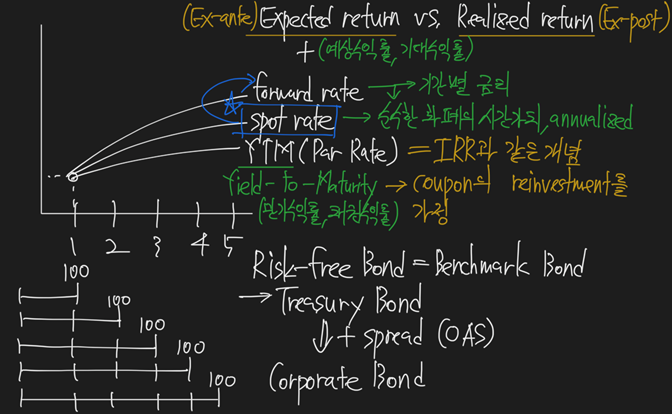 (Ex-ante) Expected return vs. Realized return (Ex-post)
+ (예상수익률, 기대수익률)
forward rate → 기간별 금리
spot rate → 순수한 화폐의 시간가치, annualized
YTM (Par Rate) = IRR과 같은 개념
Yield-to-Maturity → coupon의 reinvestment를
(만기수익률, 채권수익률) 가정
1 2 3 4 5
Risk-free Bond = Benchmark Bond
→ Treasury Bond
↓ + spread (OAS)
Corporate Bond
100
100
100
100
100